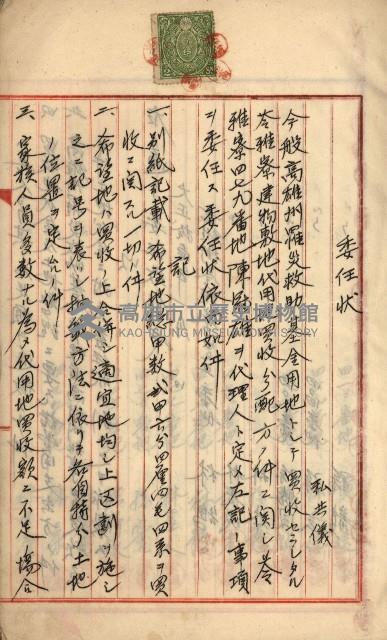 委任状
私共儀
今般高雄州羅災救助基金用地トシテ買收セラレタル
苓雅寮建物敷地代用地買收分配方ノ件ニ関シ苓
雅寮四七九番地陳冠雄ヲ代理人ト定メ左記ノ事項
ヲ委任ス委任状依テ如件
記
一、別紙記載ノ希望地甲数貳甲六分四厘四毛四系ヲ買
收ニ関スル一切ノ件
二、希望地ハ買收ノ上合筆シ適宜地均シ上区劃ヲ施シ
之ニ記号ヲ表シ抽籤方法ニ依リテ各自持分土地
ノ位置ヲ定ムル件
三、家族人員多数ナル為メ代用地買收額ニ不足ノ場合
高雄市立歷史博物館
KAOHSIUNG MUSEUM OF HISTORY